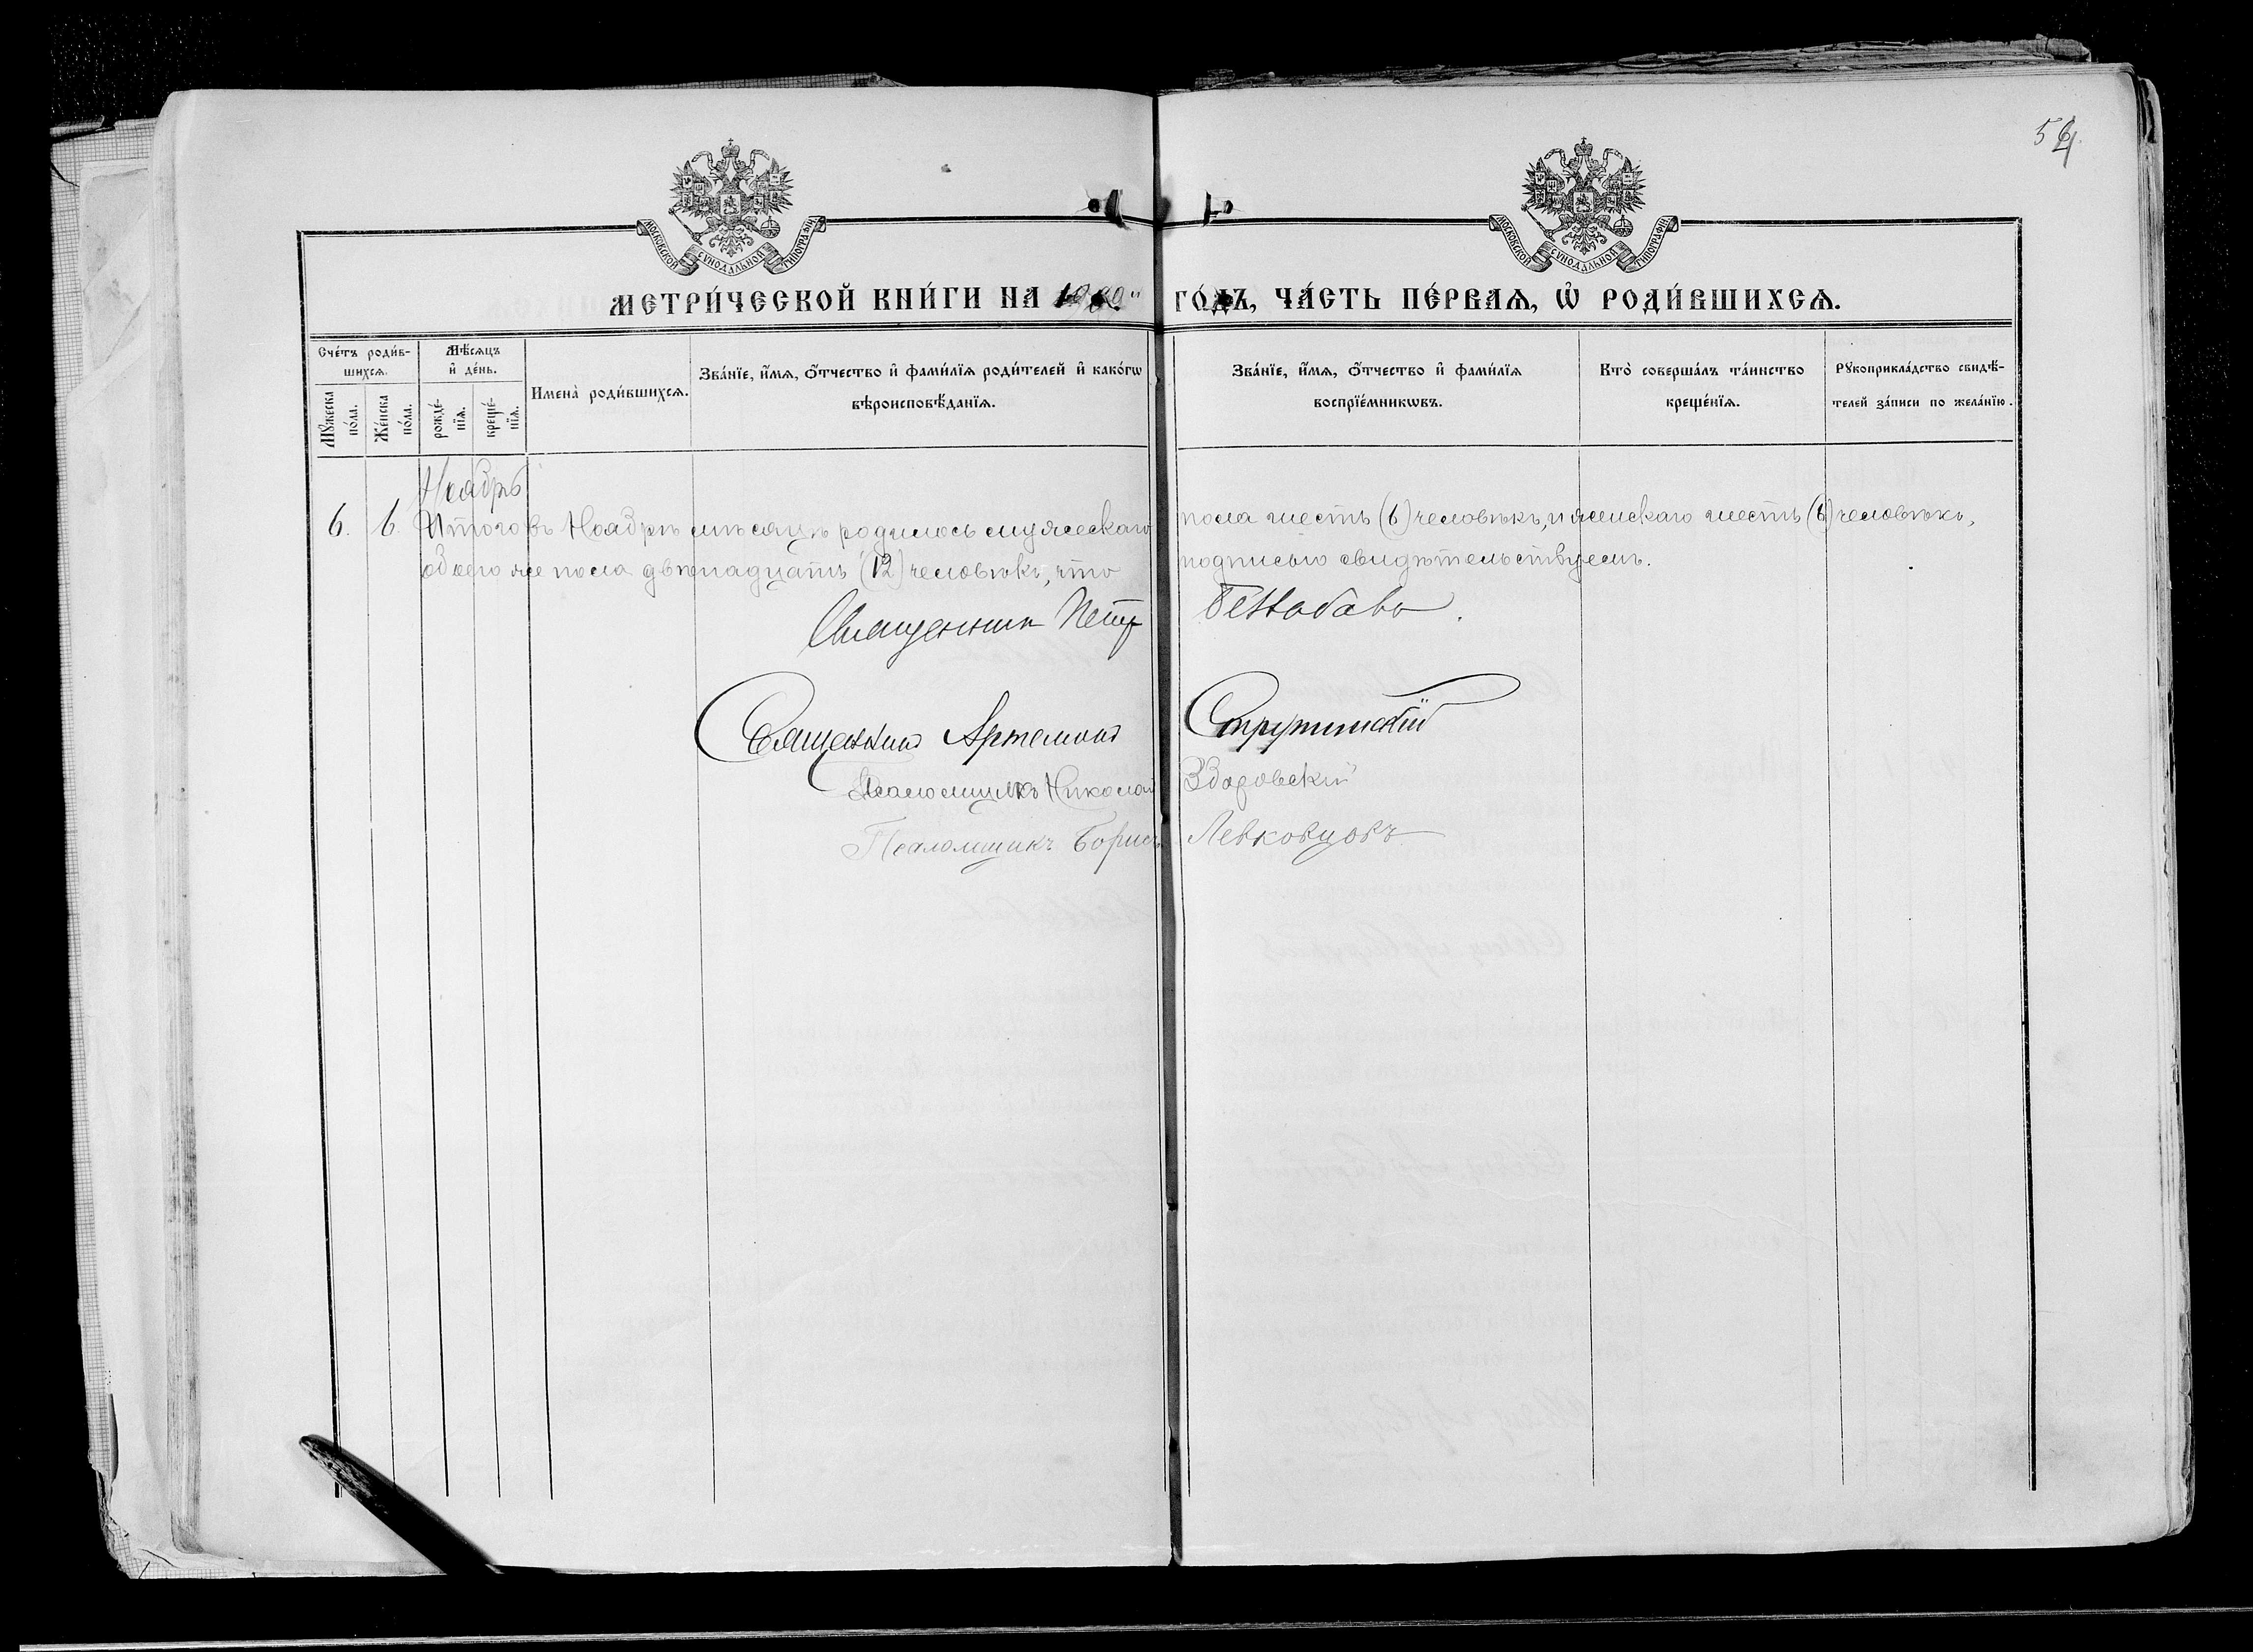 54.
МОСКОВСКОЙ СУНОДАЛЬНОЙ ТИПОГРАФІИ
МОСКОВСКОЙ СУНОДАЛЬНОЙ ТИПОГРАФІИ
МЕТРИ́ЧЕСКОЙ КНИ́ГИ НА ГО́ДЪ, ЧА́СТЬ ПЕ́РВАЯ, Ѡ РОДИ́ВШИХСЯ.
Сче́тъ роди́в-
шихся.
Мꙋ́жеска по́ла.
Же́нска по́ла.
Мѣ́сяцъ и҆ де́нь.
рожде́-
нїя.
креще́-
нїя.
Имена̀ роди́вшихся.
Зва́нїе, и҆́мя, ѻ҆́тчество и҆ фами́лїя роди́телей и҆ како́гѡ
вѣроисповѣ́данїя.
Зва́нїе, и҆́мя, ѻ҆́тчество и҆ фами́лїя
воспрїе́мникѡвъ.
Кто̀ соверша́лъ та́инство
креще́нїя.
Рꙋкоприкла́дство свидѣ́-
телей за́писи по жела́нїю.
Ноябрь
6. 6. Итого въ Ноябрѣ мѣсяцѣ родилось мужескаго пола шесть (6) человѣкъ, и женскаго шесть (6) человѣкъ,
обоего же пола двѣнадцать (12) человѣкъ, что подписью свидѣтельствуемъ.
Священникъ Петръ
Священникъ Артемонъ Струтинскій
Псаломщикъ Николай Здоровскій
Псаломщикъ Борисъ Левковцовъ